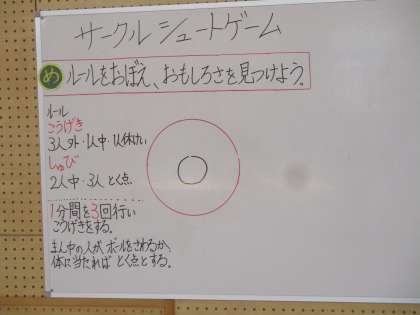 サークルシュートゲーム
め ルールをおぼえ、おもしろさを見つけよう。
ルール
こうげき
3人外・1人中・1人休けい
しゅび
2人中・3人とく点
1分間を3回行い
こうげきをする。
人中の人が、ボールをさわるか、
体に当たればとく点とする。